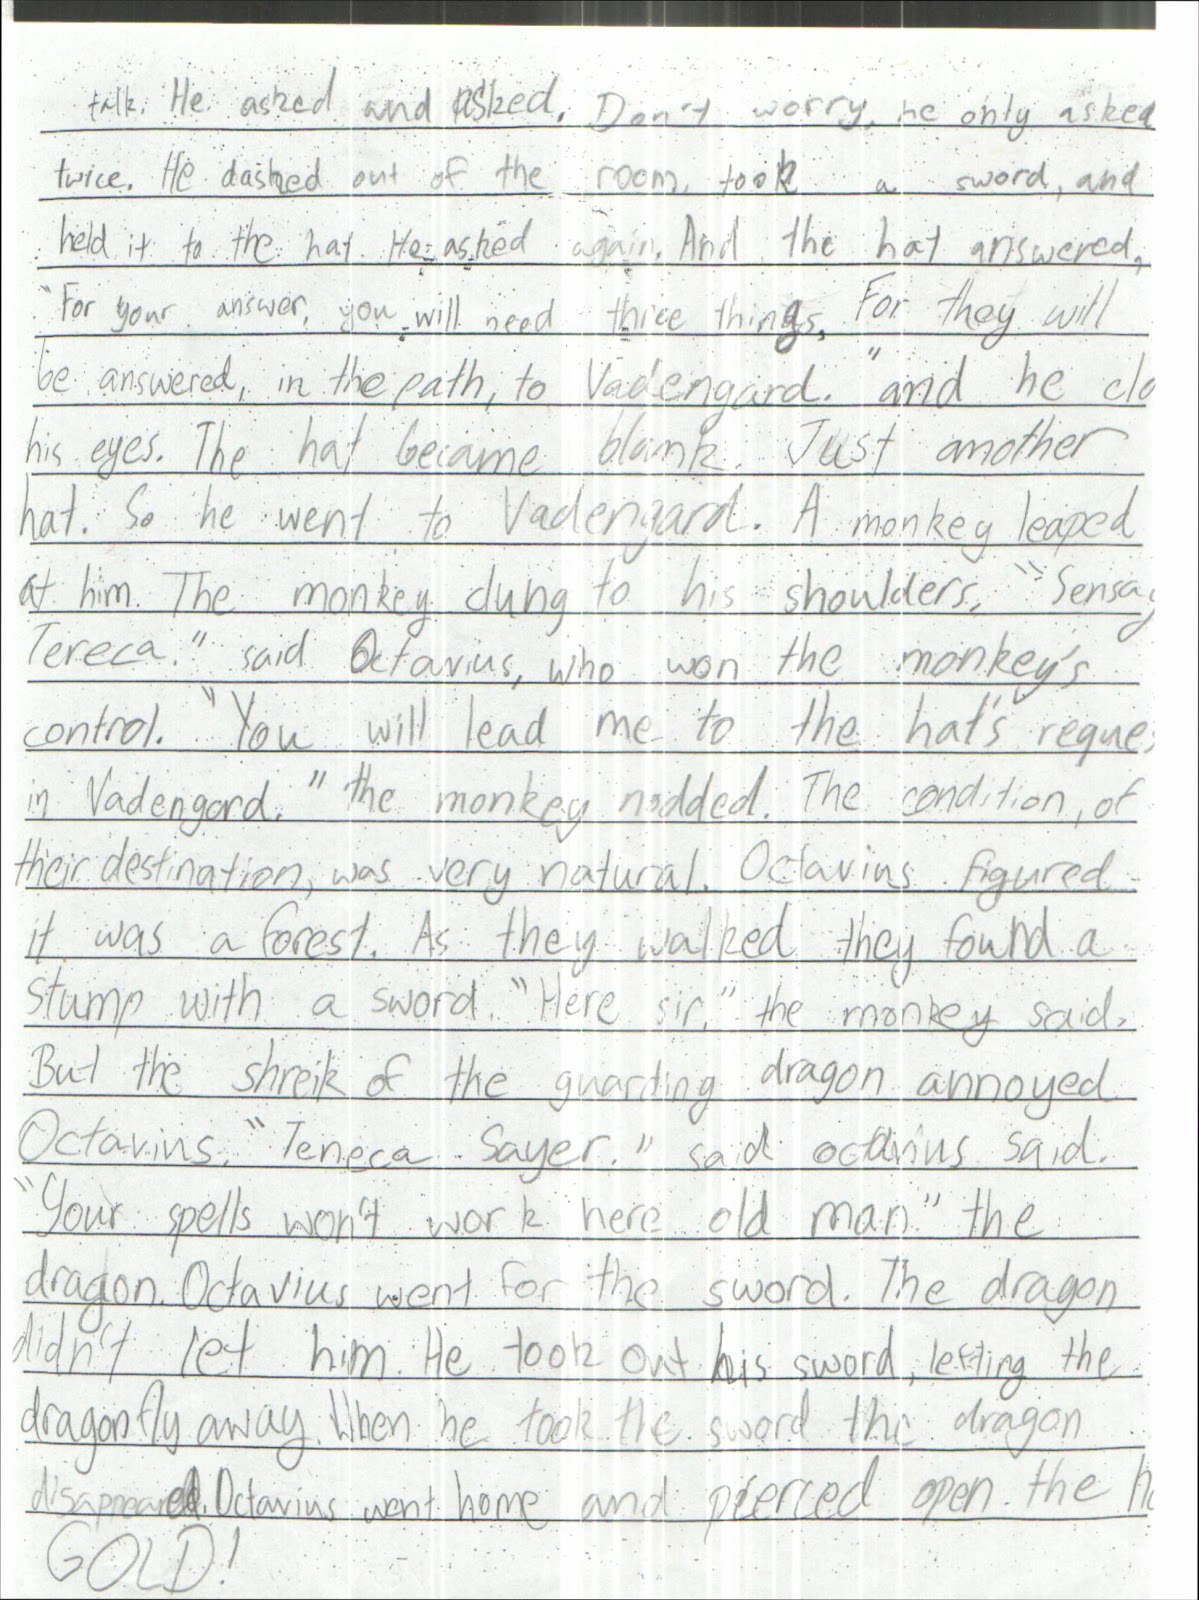 talk. He asked and asked. Don't worry, he only asked
twice. He dashed out of the room, took a sword, and
held it to the hat. He asked again. And the hat answered,
"For your answer, you will need three things. For they will
be answered, in the path, to Vadengard." and he clo
his eyes. The hat became blank. Just another
hat. So he went to Vadengard. A monkey leaped
at him. The monkey clung to his shoulders. "Sensay
Tereca." said Octavius, who won the monkey's
control. "You will lead me to the hat's reques
in Vadengard." the monkey nodded. The condition, of
their destination, was very natural. Octavius figured
it was a forest. As they walked they found a
stump with a sword. "Here sir." the monkey said.
But the shreik of the guarding dragon annoyed
Octavius. "Teneca Sayer." said octavius said.
"Your spells won't work here old man" the
dragon. Octavius went for the sword. The dragon
didn't let him. He took out his sword, letting the
dragon fly away. When he took the sword the dragon
disappeared. Octavius went home and pierced open the ha
GOLD!